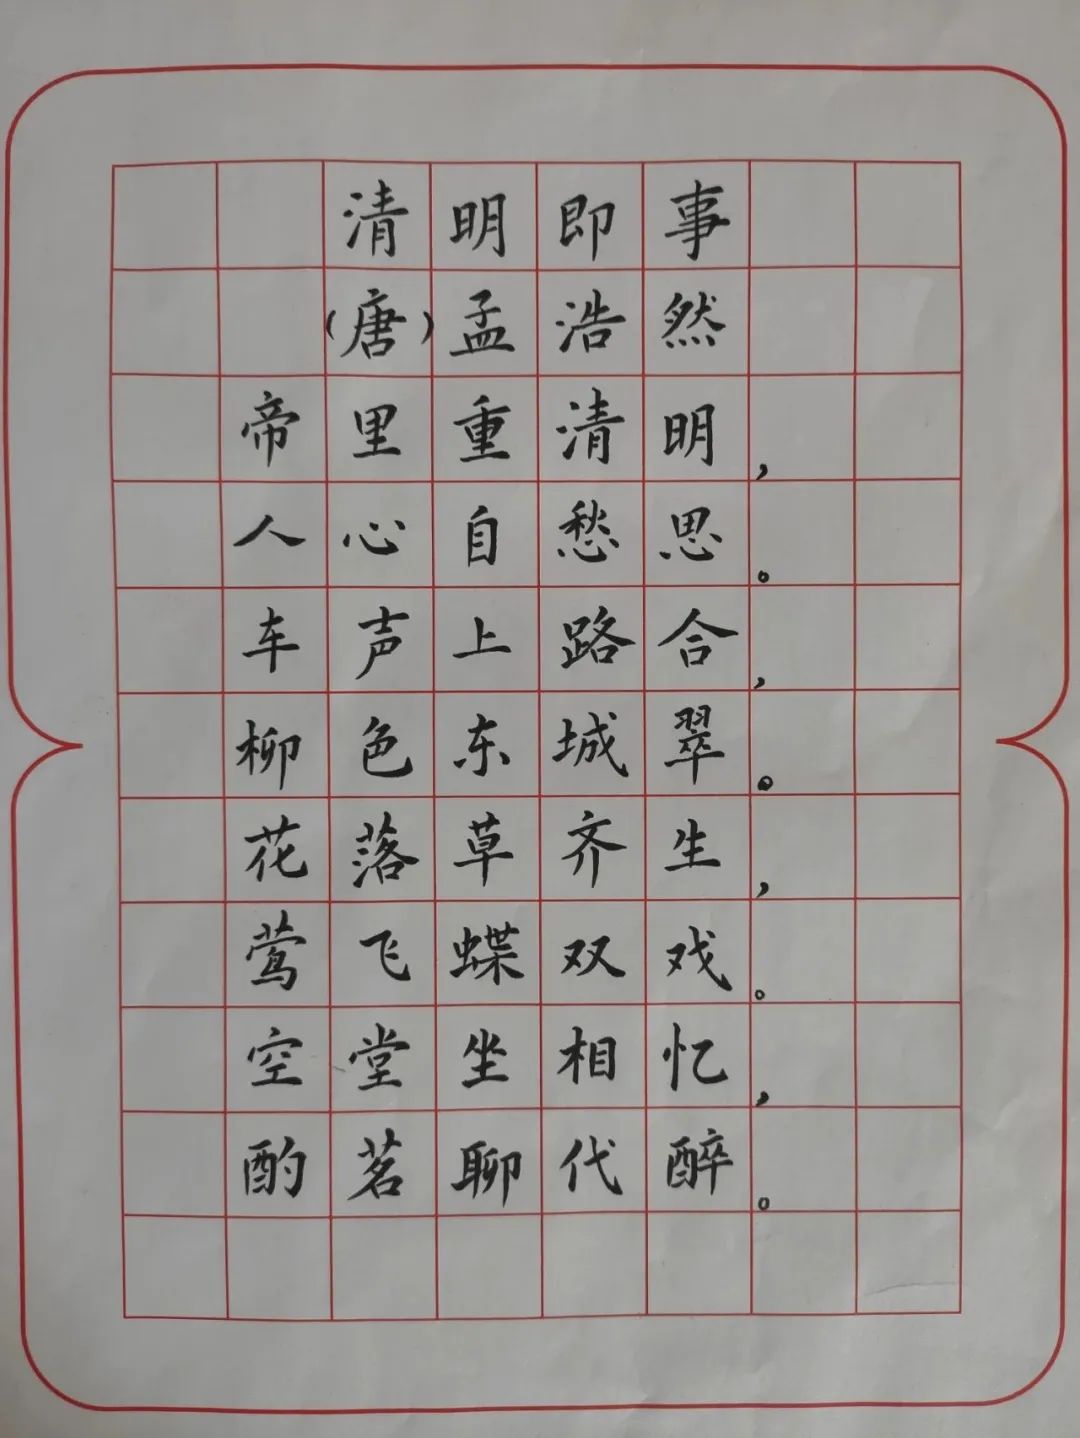 清明即事
(唐)孟浩然
帝里重清明,
人心自愁思。
车声上路合,
柳色东城翠。
花落草齐生,
莺飞蝶双戏。
空堂坐相忆,
酌茗聊代醉。